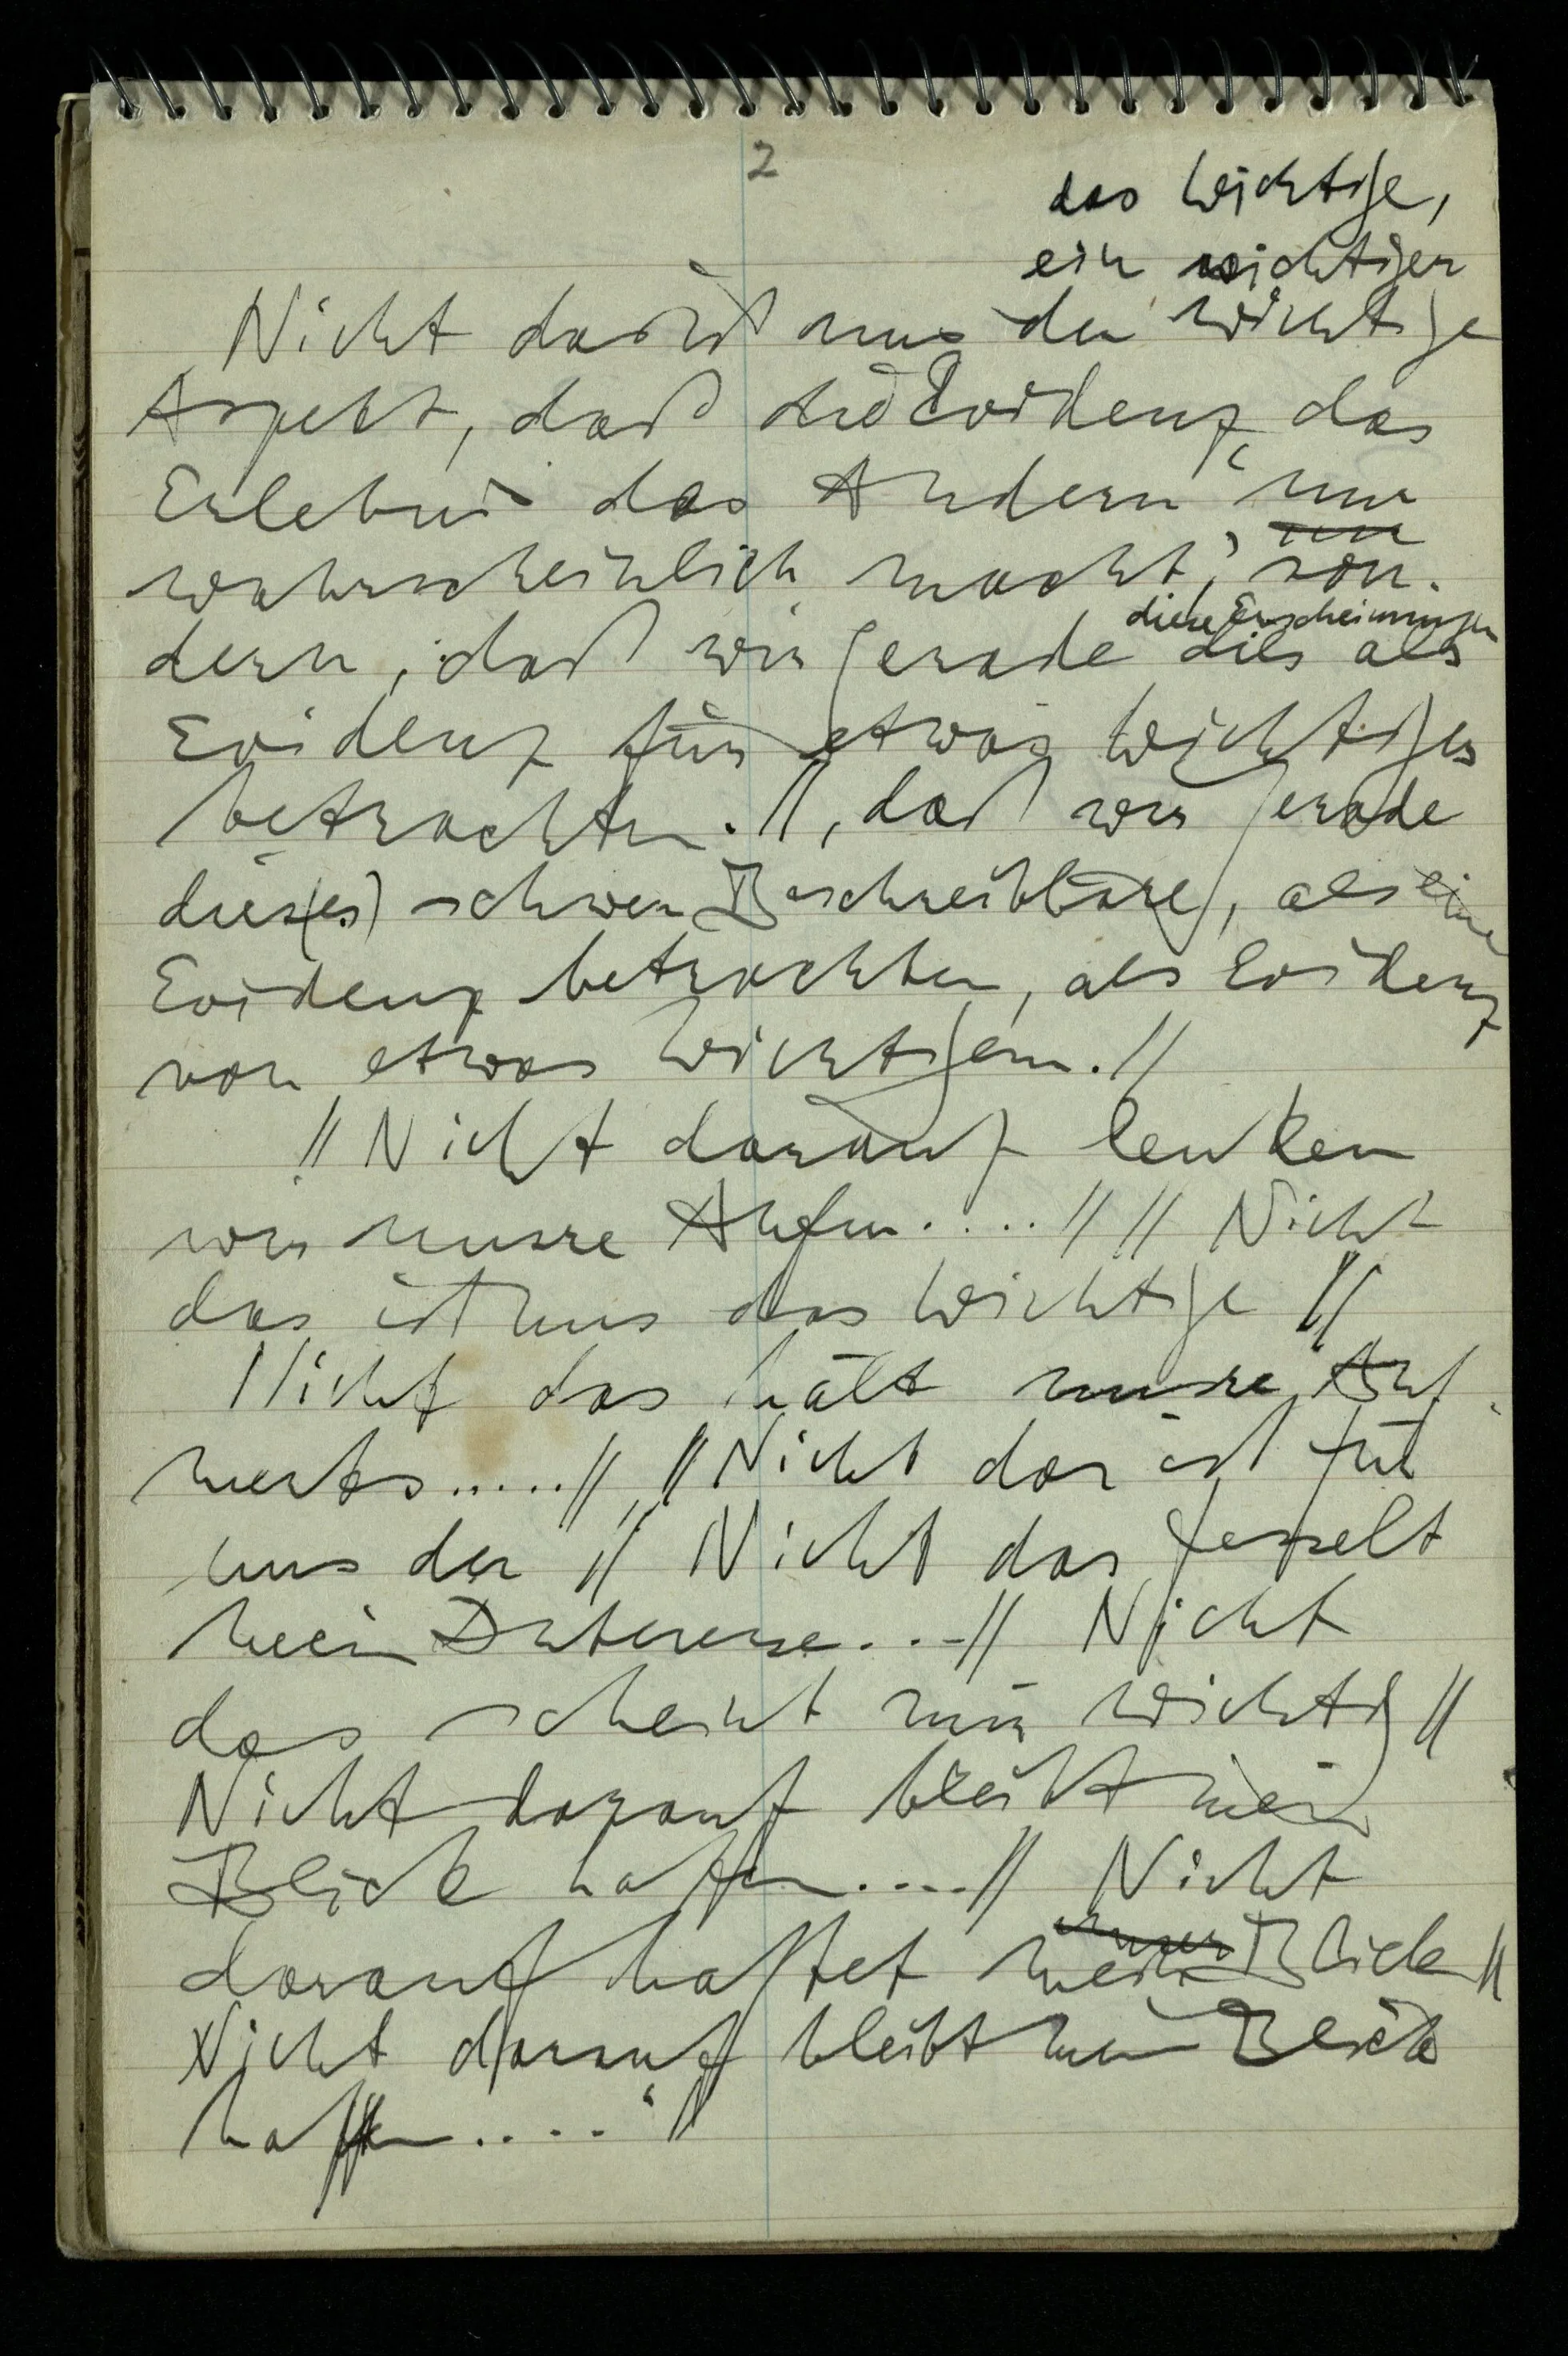 2
das Wichtige,
ein wichtiger
Nicht das ist uns der wichtige
Aspekt, daß die Evidenz das
Erlebnis des Andern ‘nur
nur
wahrscheinlich macht’, son-
diese Erscheinungen
dern, daß wir gerade dies als
Evidenz für etwas Wichtiges
betrachten. //, daß wir gerade
dies(es) schwer Beschreibbare, als eine
Evidenz betrachten, als Evidenz
von etwas Wichtigem. //
// Nicht darauf lenken
wir unsre Aufm.... // // Nicht
das ist uns das Wichtige //
Nicht das hält unsre Auf-
merks..... // // Nicht das ist für
uns der // Nicht das fesselt
mein Interesse...- // Nicht
das scheint mir wichtig //
Nicht darauf bleibt mein
Blick haften.... // Nicht
unser
darauf haftet mein Blick //
Nicht darauf bleibt mein Blick
haften..... //